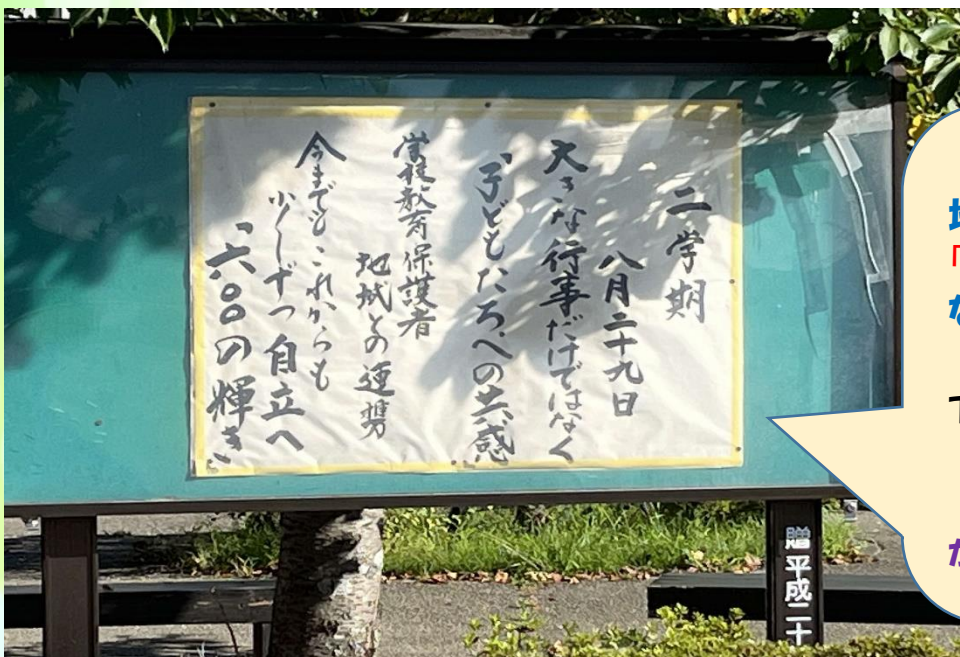 二学期
八月二十九日
大きな行事だけではなく
子どもたちへの共感
学校教育 保護者
地域との連携
今までもこれからも
少しずつ自立へ
六〇〇の輝き
贈 平成二十